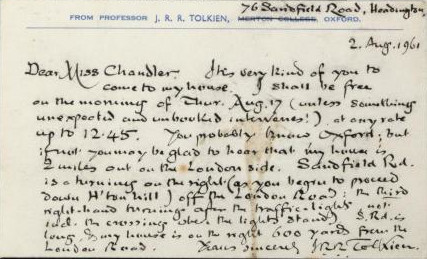 76 Sandfield Road, Headington,
FROM PROFESSOR J. R. R. TOLKIEN, MERTON COLLEGE, OXFORD.
2. Aug. 1961
Dear Miss Chandler. It's very kind of you to
come to my house. I shall be free
on the morning of Thur. Aug. 17 (unless something
unexpected and unbooked intervenes!) at any rate
up to 12.45. You probably know Oxford; but
if not you may be glad to hear that my house is
2 miles out on the London side. Sandfield Rd.
is a turning on the right (as you begin to proceed
down H'ton hill) off the London Road: the third
right-hand turning after the traffic lights (not
incl. the crossing where the lights stand). S. Rd. is
long, & my house is on the right 600 yards from the
London Road. Yours sincerely J.R.R. Tolkien.